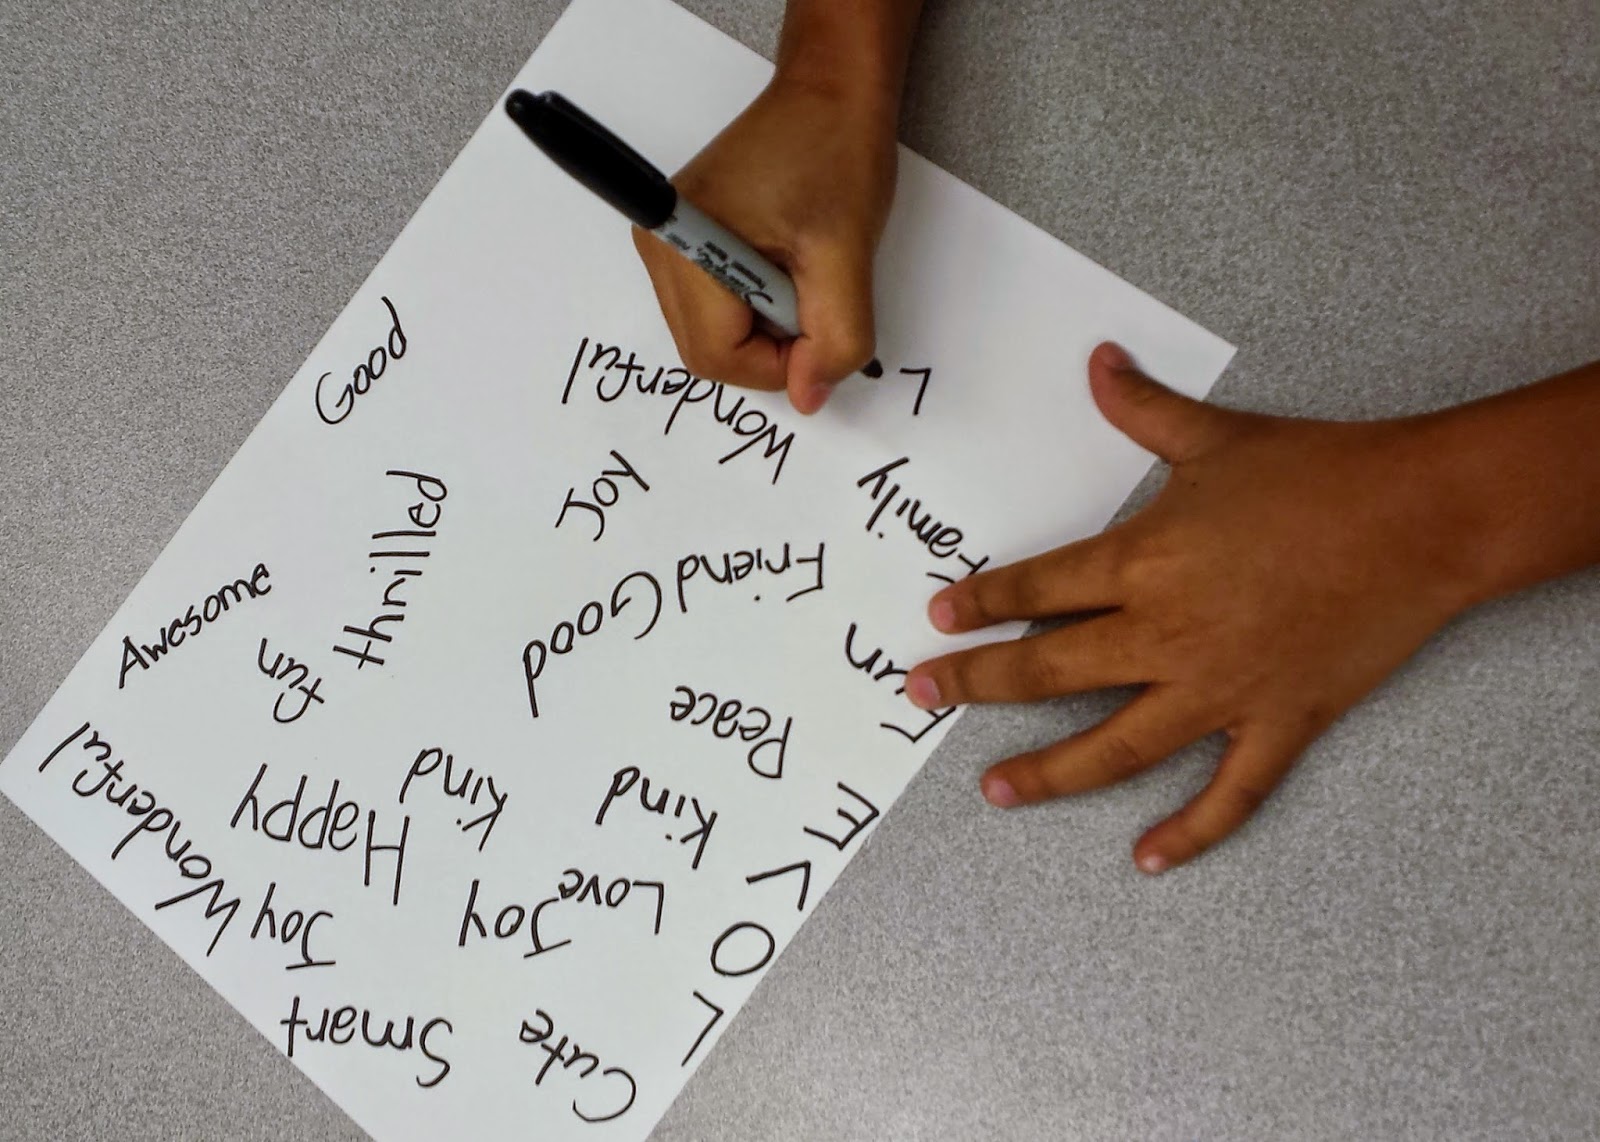 L O V E
Cute
Smart
Love
Joy
Joy
Wonderful
Happy
kind
kind
Peace
Fun
Family
Friend
Good
Joy
Wonderful
L
fun
thrilled
Awesome
Good
Sharpie